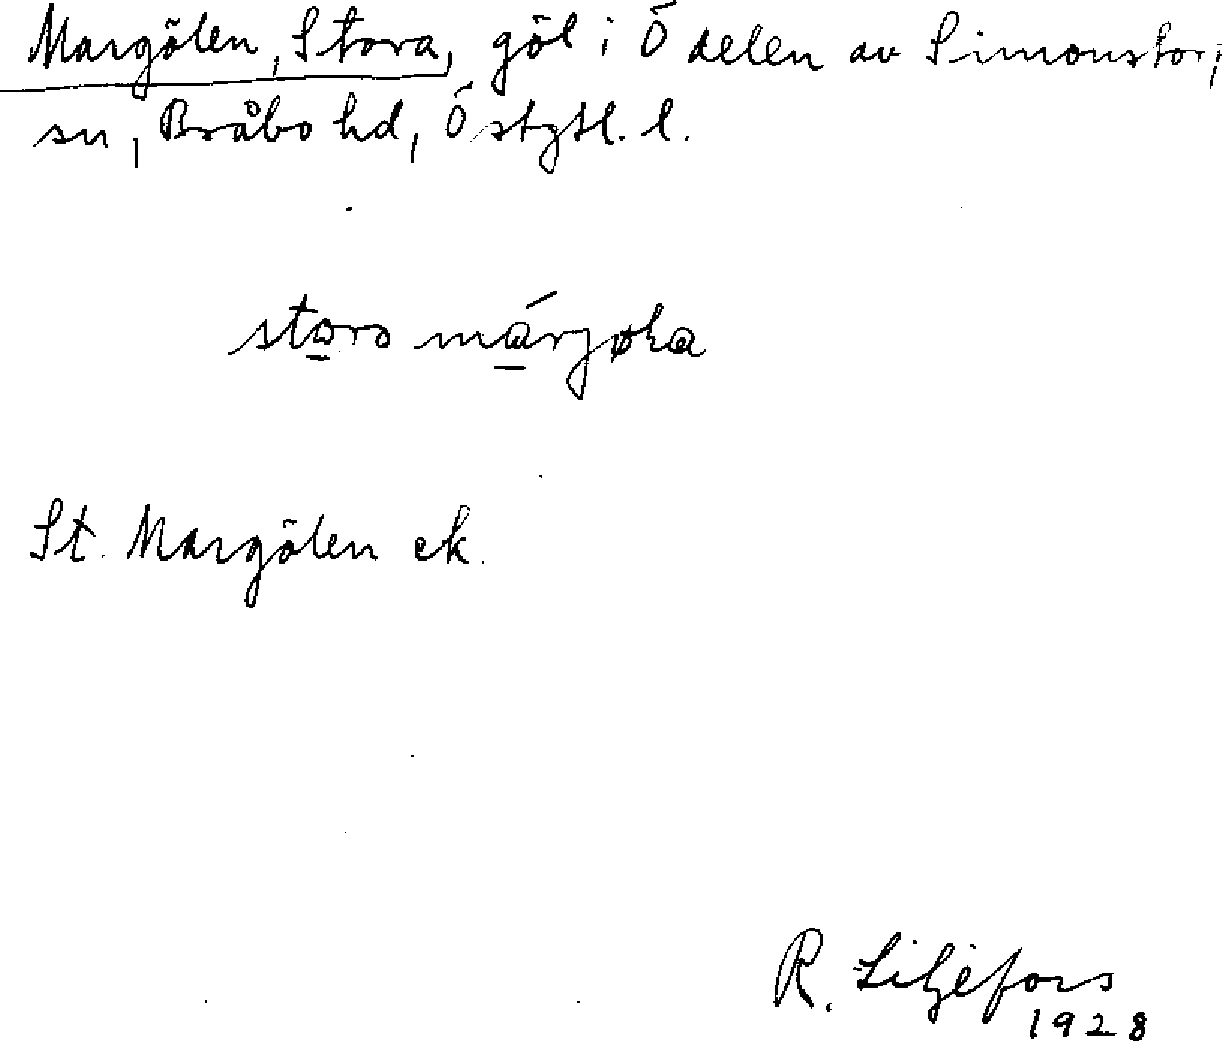 Margölen, Stora, göl i Ö delen av Simonstorps
sn, Bråbo hd, Östgtl. l.
St. Margölen ek.
R. Liljefors
1928